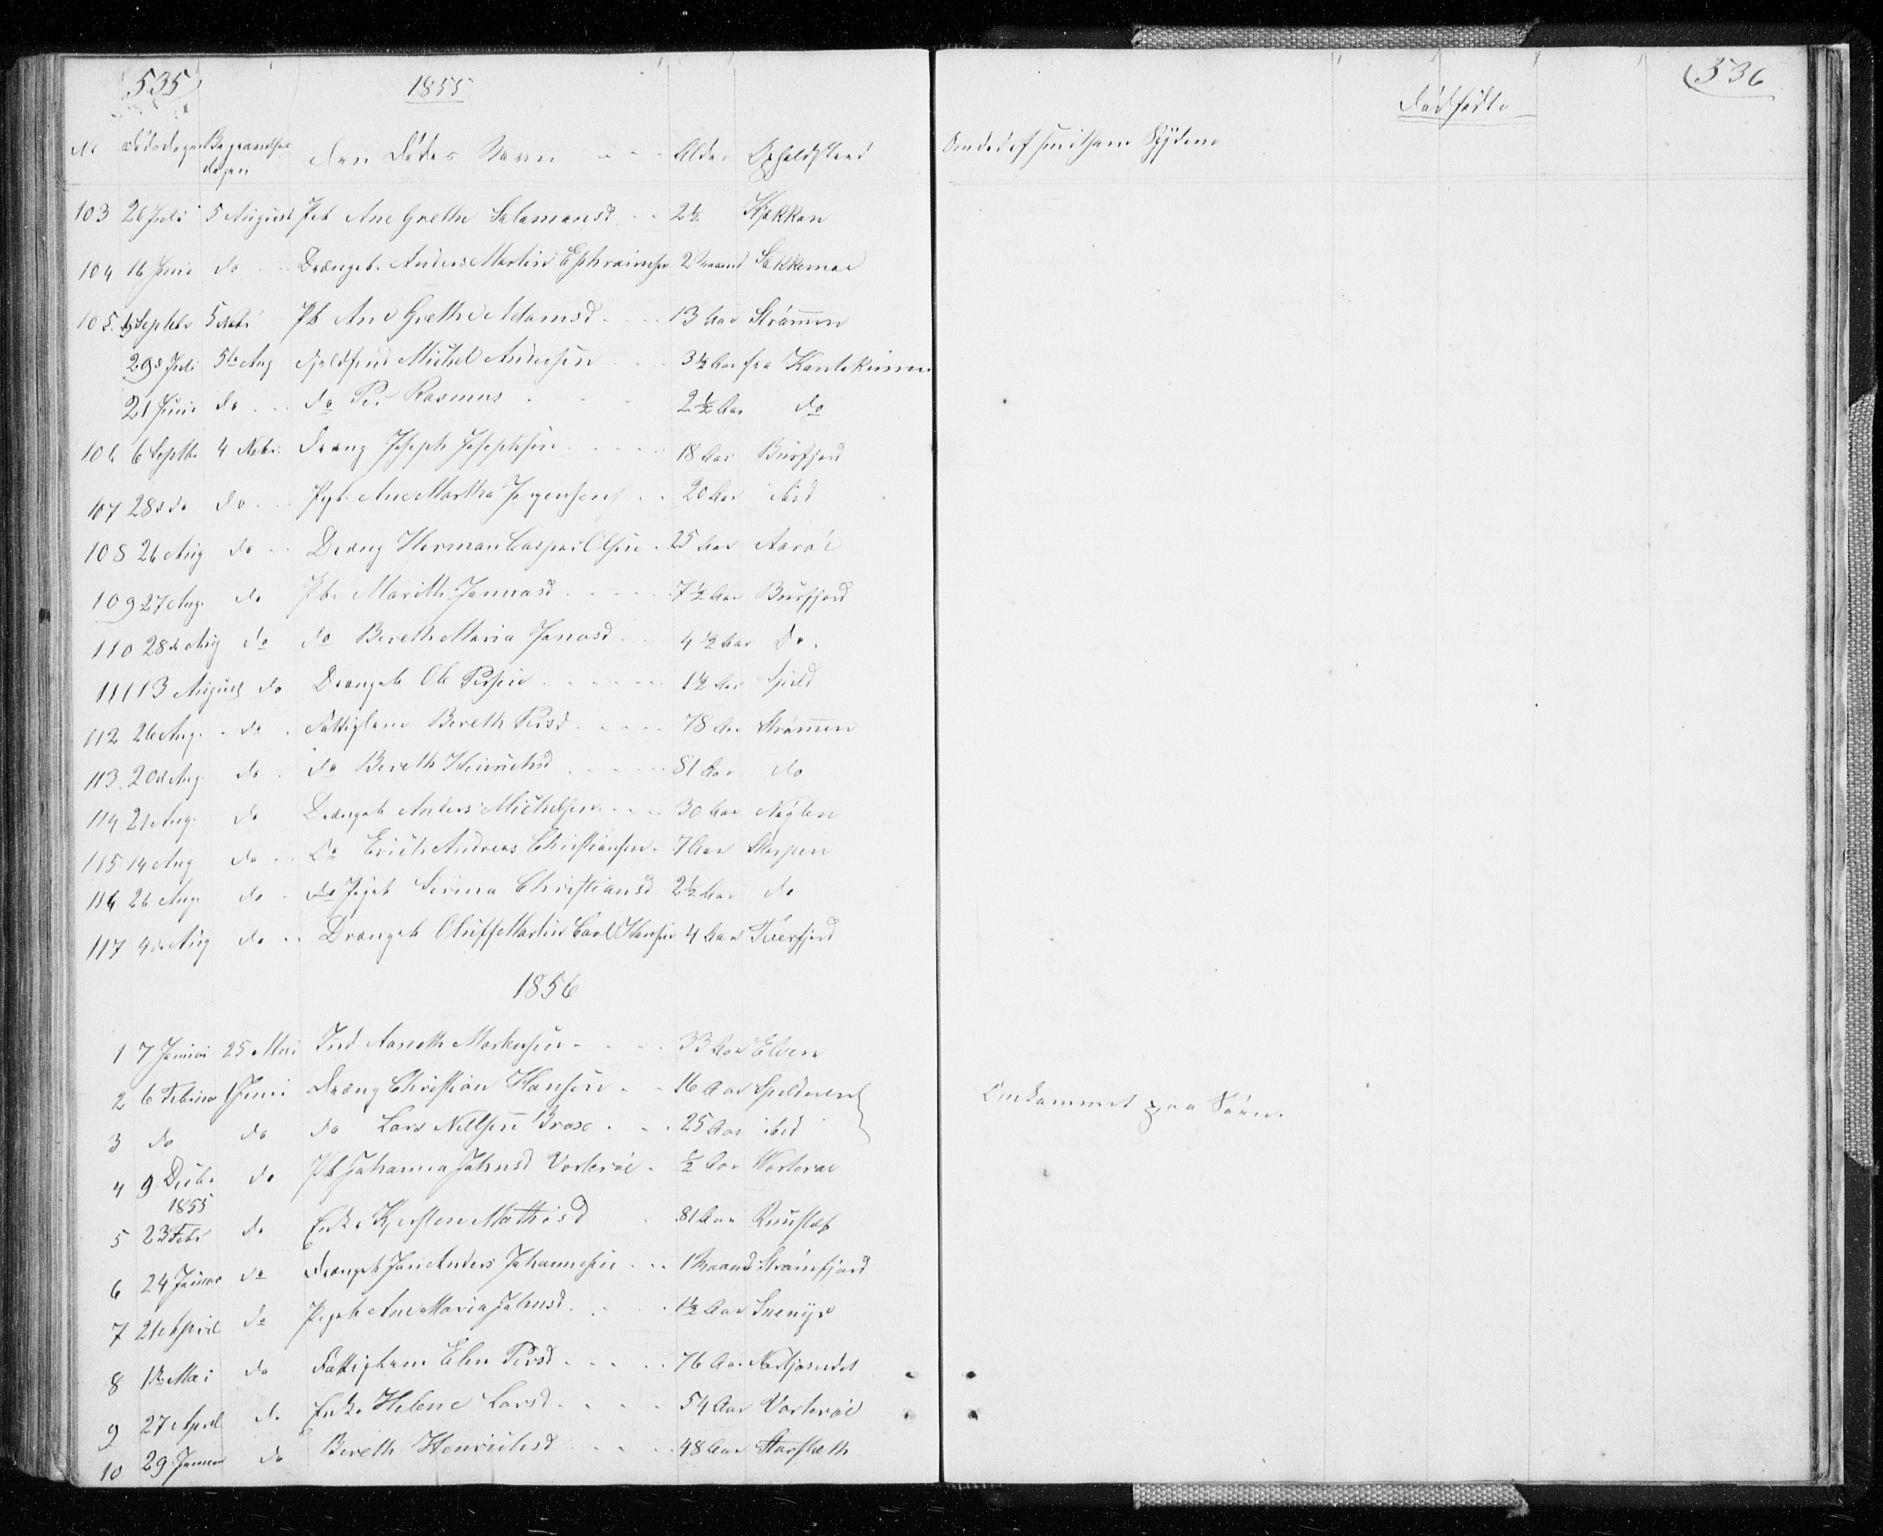 535
1855
No Dødsdagen Begravelses dagen Den Dødes Navn Alder Opholdsted
103 26 Juli 5 August Pb Ane Grethe Salamonsd 2½ Kjækkan
104 16 Juni do Drængeb. Anders Martin Ephraimsen 2 Maaned Sakkemoe
105 Septbr 5 Pb Ane Grethe Adamsd 13 Aar Strømmen
29de Juli 5te Aug Fjeldfind Michel Andersen 3½ Aar fra Kautokeino
21 Juni do do Per Rasmus 2½ Aar do
106 6 Septbr 4 Nobr. Dræng Joseph Josephsen 18 Aar Burfjord
107 28de do do Pige Ane Martha Jørgensen 20 Aar ibid
108 26 Aug do Dræng Herman Caspar Olsen 25 Aar Aarøe
109 27 Aug. do Pb. Marith Jonasd 7½ Aar Burfjord
110 28de Aug do do Bereth Maria Jonasd 4½ Aar Do.
111 13 August do Drængeb Ole Persen 1½ Aar
112 26 Aug. do Fattiglem Bereth Persd 78 Aar Strømmen
113 20de Aug. do do Bereth Henrichsd 81 Aar do
114 21 Aug. do Drængeb Anders Michelsen 30 Aar
115 14 Aug do Do Erich Andreas Christiansen 7 Aar Skorpen
116 26 Aug. do do Pigeb Serina Christiansd 2½ Aar do
117 4de Aug do Drængeb Oluf Martin Carl Hansen 4 Aar Tverfjord
1856
1 7 Januar 25 Mai Ind Aareth Markusen 33 Aar Elven
2 6 Februar 1 Juni Dræng Christian Hansen 16 Aar Spildernes
3 do do do Lars Nellsen Brose 25 Aar ibid
4 9 Decbr. 1855 do Pb Johanna Johnsd Vorterøe ½ Aar Vorterøe
5 23 Febr do Enke Kjersten Mathisd 81 Aar
6 24 Januar do Drængeb Jon Anders Johannesen 1 Maaned Strømfjord
7 21 April do Pigeb Ane Maria Johnsd 1½ Aar
8 1te Mai do Fattiglem Elen Persd 76 Aar
9 27 April do Enke Helene Larsd 54 Aar Vorterøe
10 29 Januar do Bereth Henrichsd 48 Aar Storsleth
536
Dødfødte
Om død af smitsom Sygdom
Omkommet paa Søen.